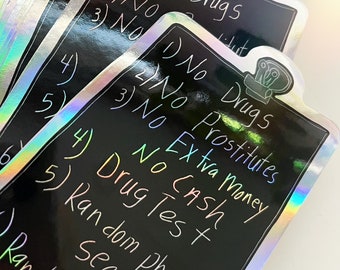 Drugs
3) No Prostitutes
4)
5)
6)
1) No Drugs
2) No Prostitutes
3) No Extra Money
No Cash
4) Drug Test
5) Random Ph
Sea
Ran